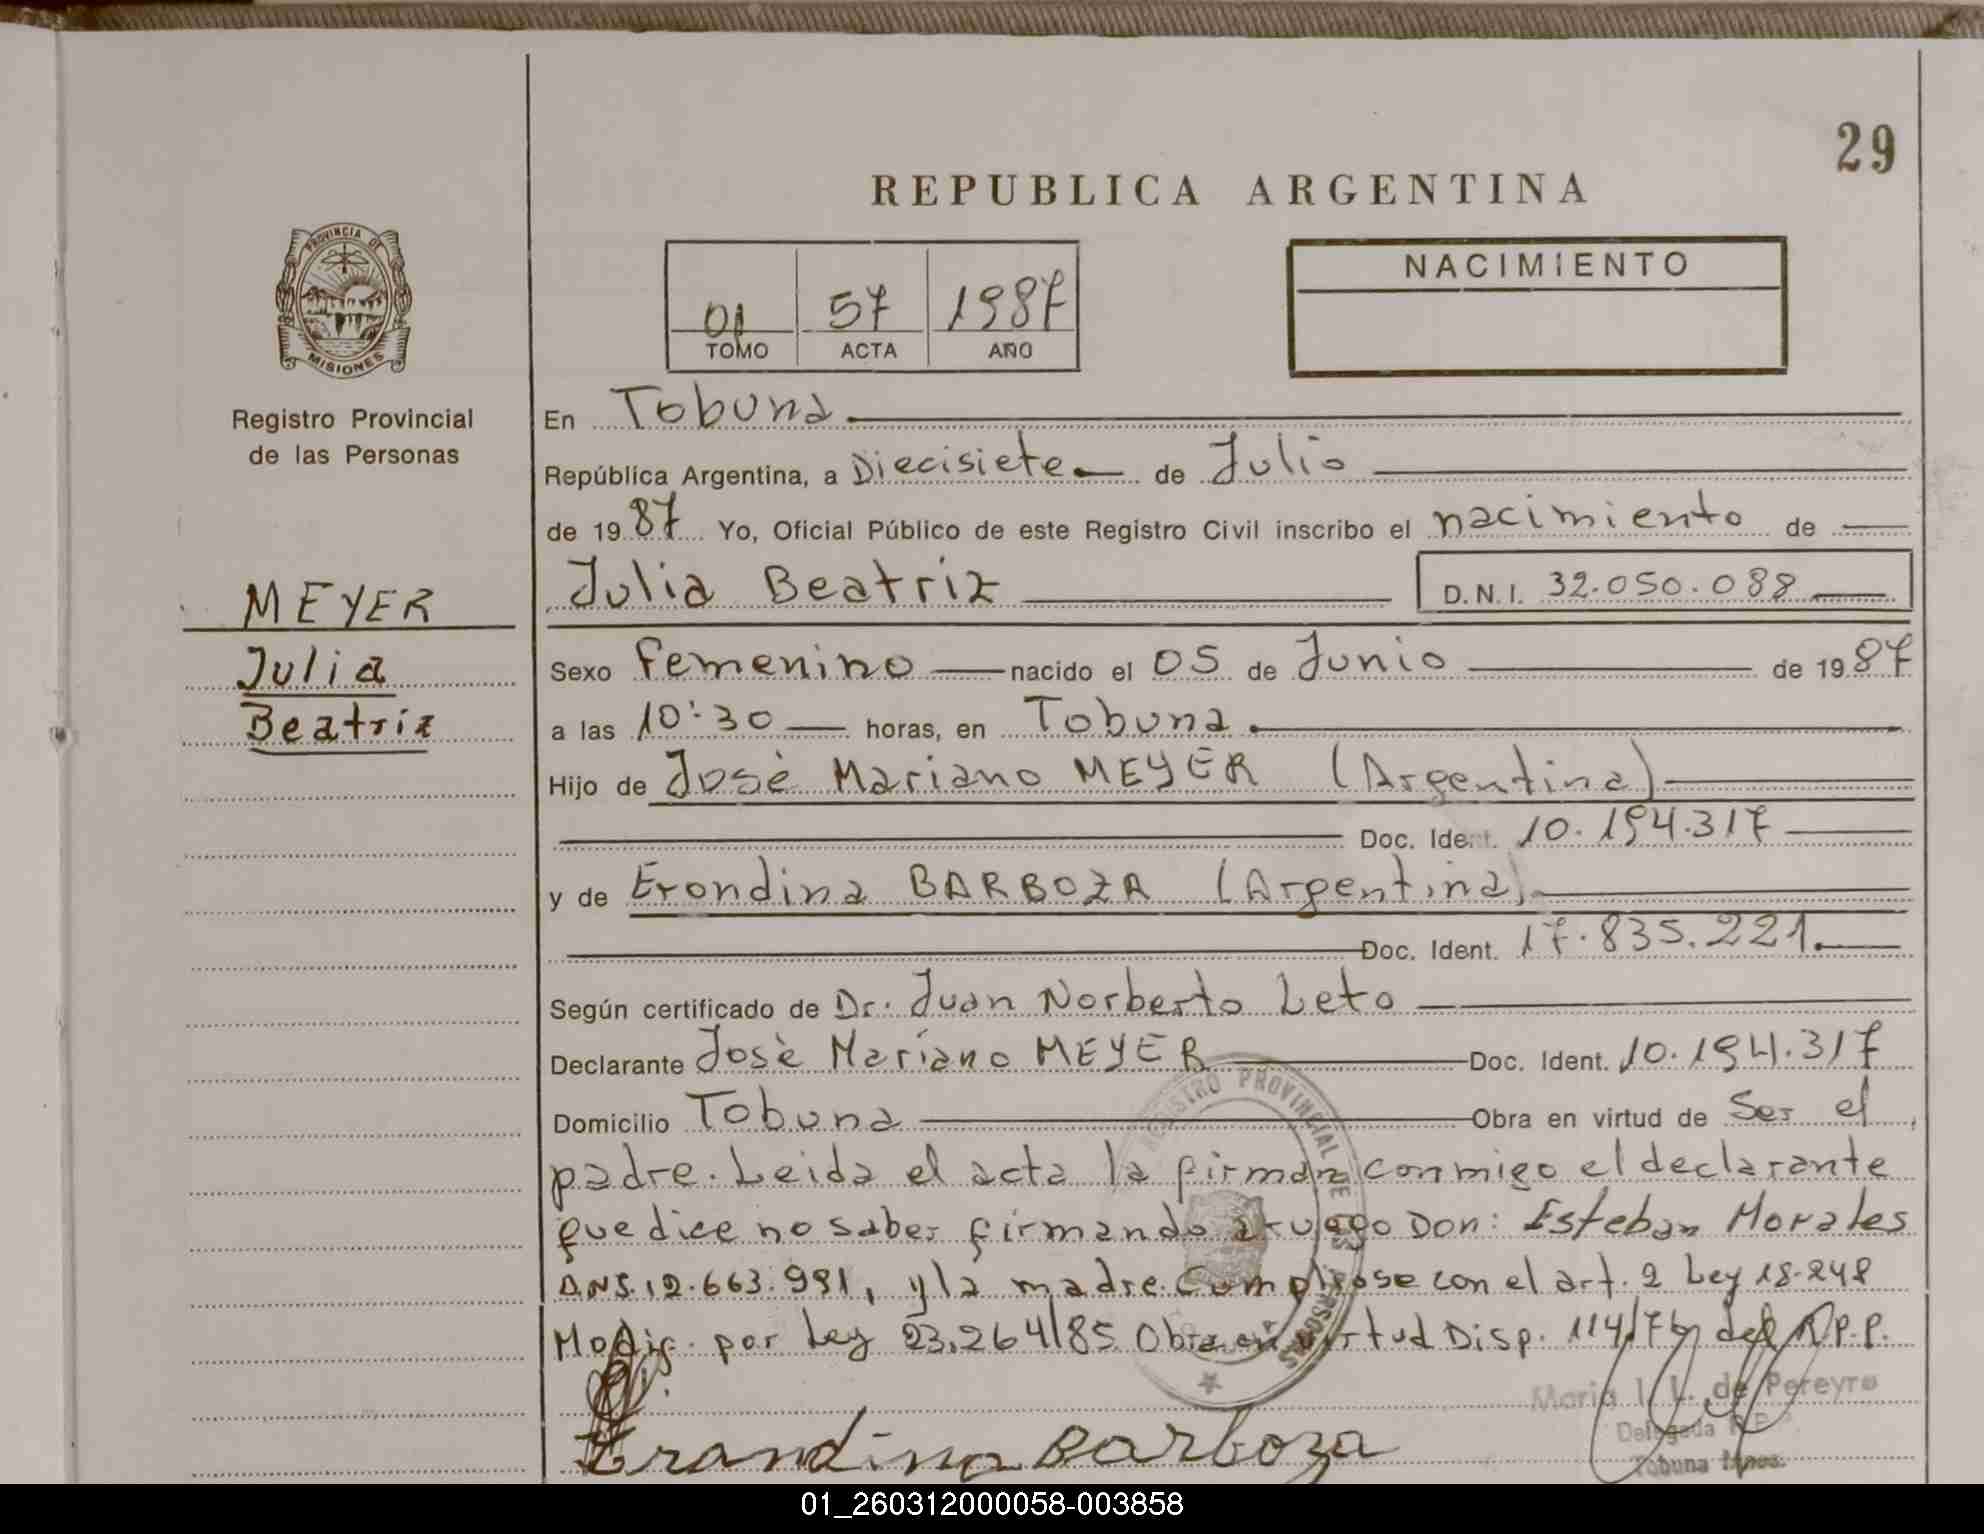 29
REPUBLICA ARGENTINA
PROVINCIA DE
MISIONES
Registro Provincial
de las Personas
01 57 1987
TOMO ACTA AÑO
NACIMIENTO
En Tobuna
República Argentina, a Diecisiete de Julio
de 1987 Yo, Oficial Público de este Registro Civil inscribo el nacimiento de
Julia Beatriz D.N.I. 32.050.088
MEYER
Julia
Beatriz
Sexo Femenino nacido el 05 de Junio de 1987
a las 10:30 horas, en Tobuna
Hijo de José Mariano MEYER (Argentina)
Doc. Ident. 10.194.317
y de Erondina BARBOZA (Argentina)
Doc. Ident. 17.835.221.
Según certificado de Dr. Juan Norberto Leto
Declarante Josè Mariano MEYER Doc. Ident. 10.194.317
Domicilio Tobuna Obra en virtud de Ser el
padre. Leida el acta la firman conmigo el declarante
que dice no saber firmando a ruego Don: Esteban Morales
12.663.991, y la madre. Cumpliose con el art. 2 Ley 18.248
Modif. por Ley 23.264/85 Obra en virtud Disp. 114/76 del R.P.P.
REGISTRO PROVINCIAL DE LAS PERSONAS
Maria I. L. de Pereyra
Delegada R.P.P.
Tobuna Mnes.
Erondina Barboza
01_260312000058-003858